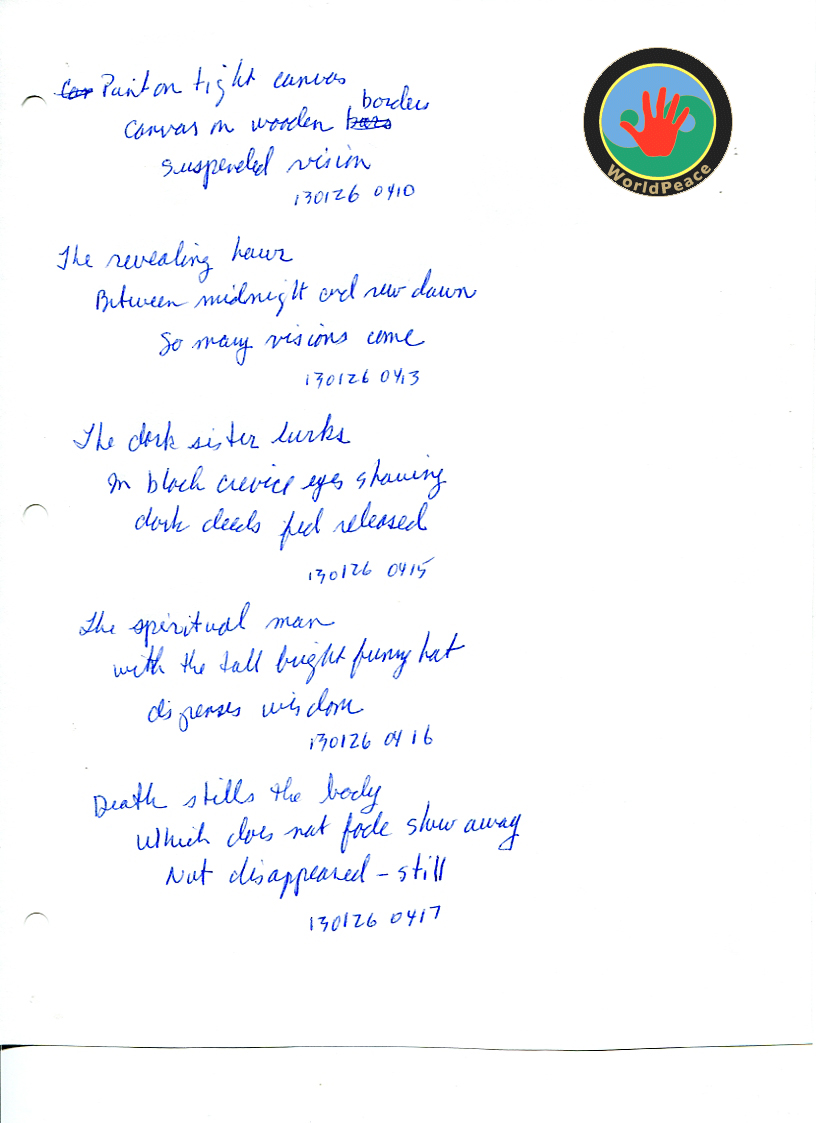 Paint on tight canvas
canvas on wooden borders
suspended vision
130126 0410
WorldPeace
The revealing hour
Between midnight and new dawn
So many visions come
130126 0413
The dark sister lurks
In black crevice eyes showing
dark deeds released
130126 0415
The spiritual man
with the tall bright funny hat
dispenses wisdom
130126 0416
Death stills the body
Which does not fade slow away
Not disappeared - still
130126 0417